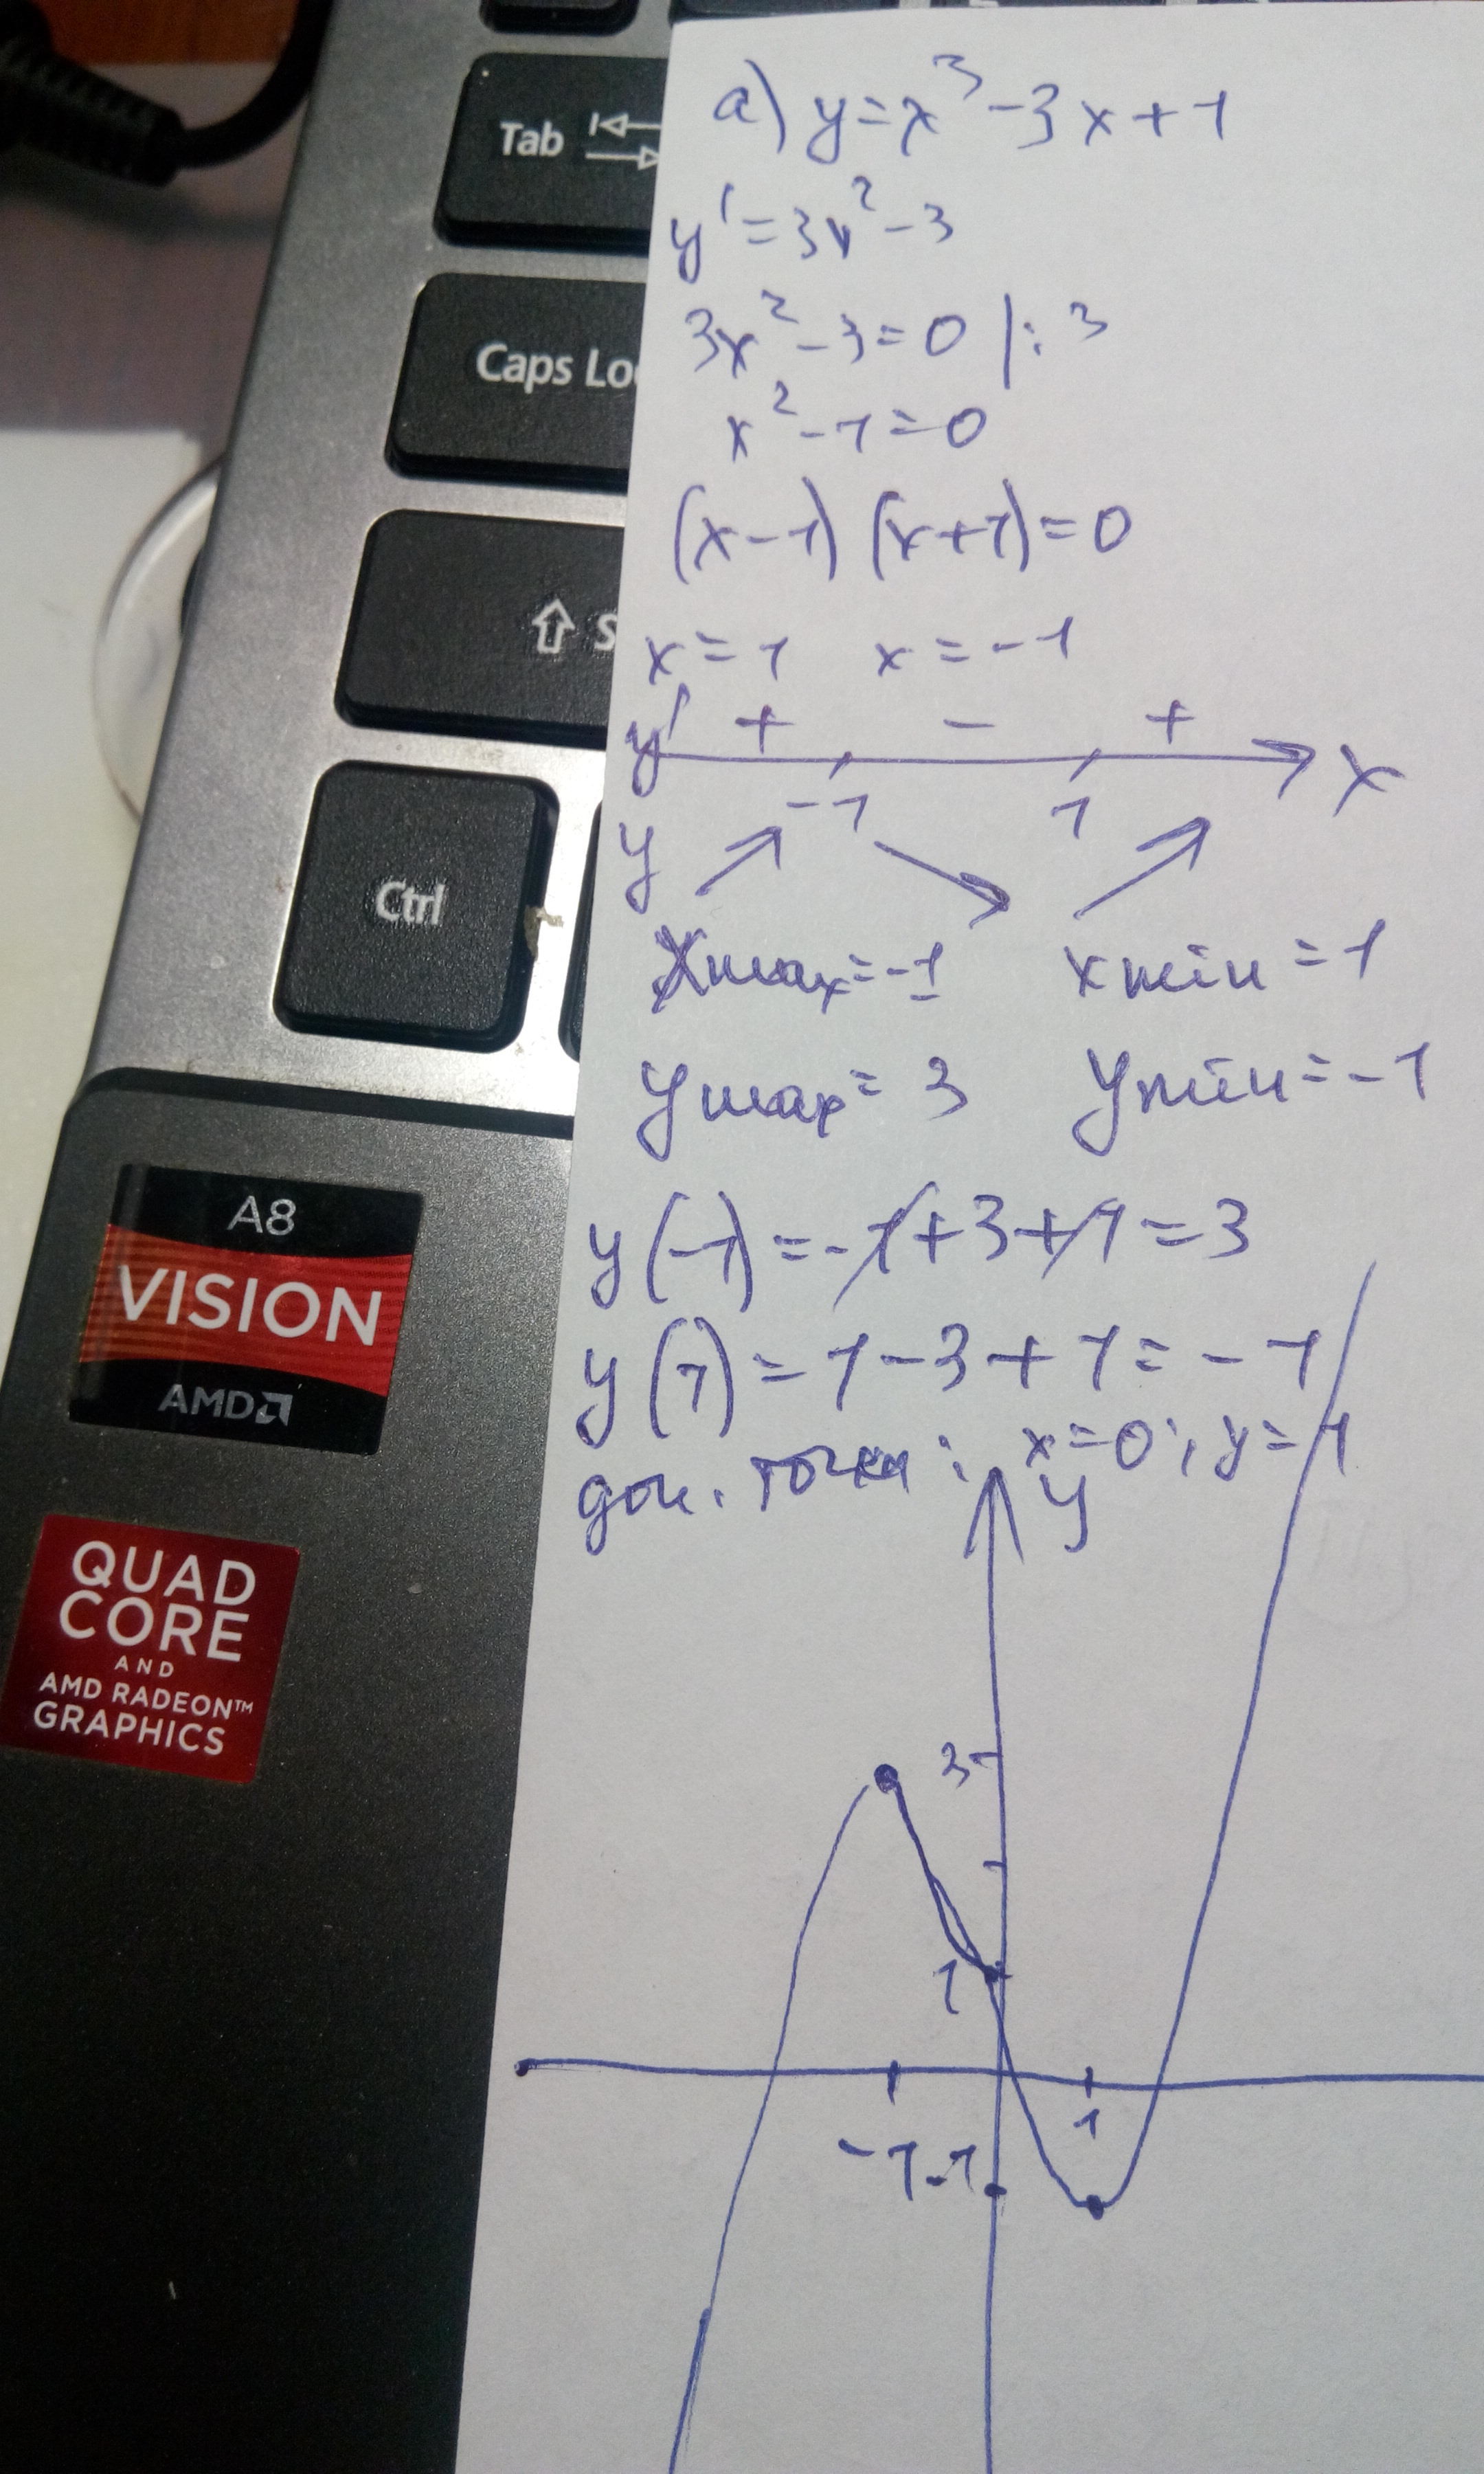 Tab
Caps Lo
S
Ctrl
A8
VISION
AMD
QUAD
CORE
AND
AMD RADEON™
GRAPHICS
a) y=x³-3x+1
y'=3x²-3
3x²-3=0 |:3
x²-1=0
(x-1)(x+1)=0
x=1 x=-1
y' + - +
-1 1 x
y
xmax=-1 xmin=1
ymax=3 ymin=-1
y(-1)=-1+3+1=3
y(1)=1-3+1=-1
доп. точки: x=0; y=1
y
3
1
-1 1
-1